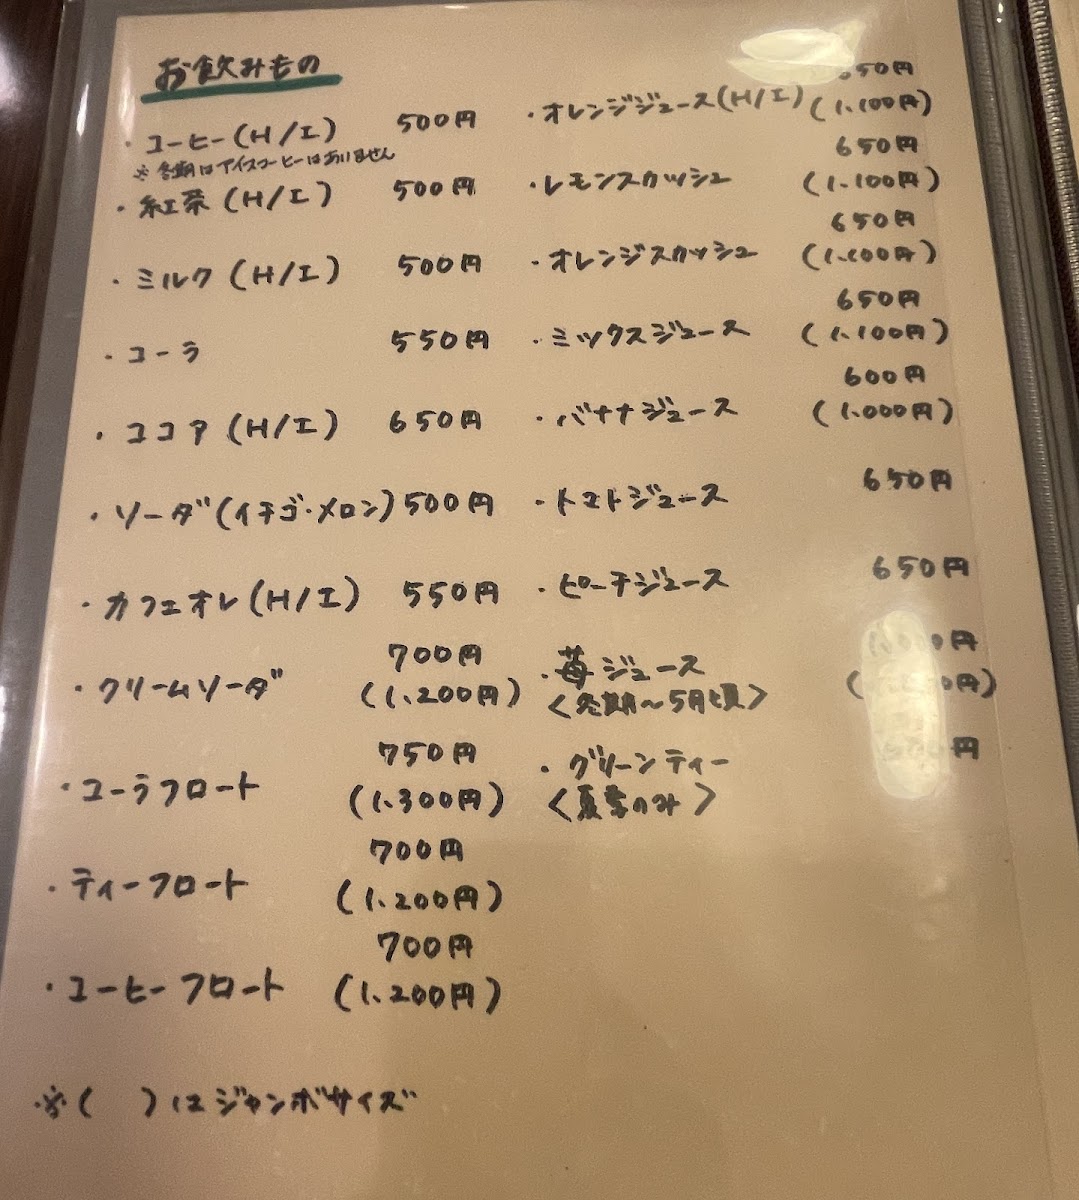 お飲みもの
・コーヒー(H/I) 500円
※冬期はアイスコーヒーはありません
・紅茶(H/I) 500円
・ミルク(H/I) 500円
・コーラ 550円
・ココア(H/I) 650円
・ソーダ(イチゴ・メロン) 500円
・カフェオレ(H/I) 550円
・クリームソーダ 700円
(1,200円)
・コーラフロート 750円
(1,300円)
・ティーフロート 700円
(1,200円)
・コーヒーフロート 700円
(1,200円)
※( )はジャンボサイズ
・オレンジジュース(H/I) 650円
(1,100円)
・レモンスカッシュ 650円
(1,100円)
・オレンジスカッシュ 650円
(1,100円)
・ミックスジュース 650円
(1,100円)
・バナナジュース 600円
(1,000円)
・トマトジュース 650円
・ピーチジュース 650円
・苺ジュース
<冬期〜5月頃>
・グリーンティー
<夏季のみ>